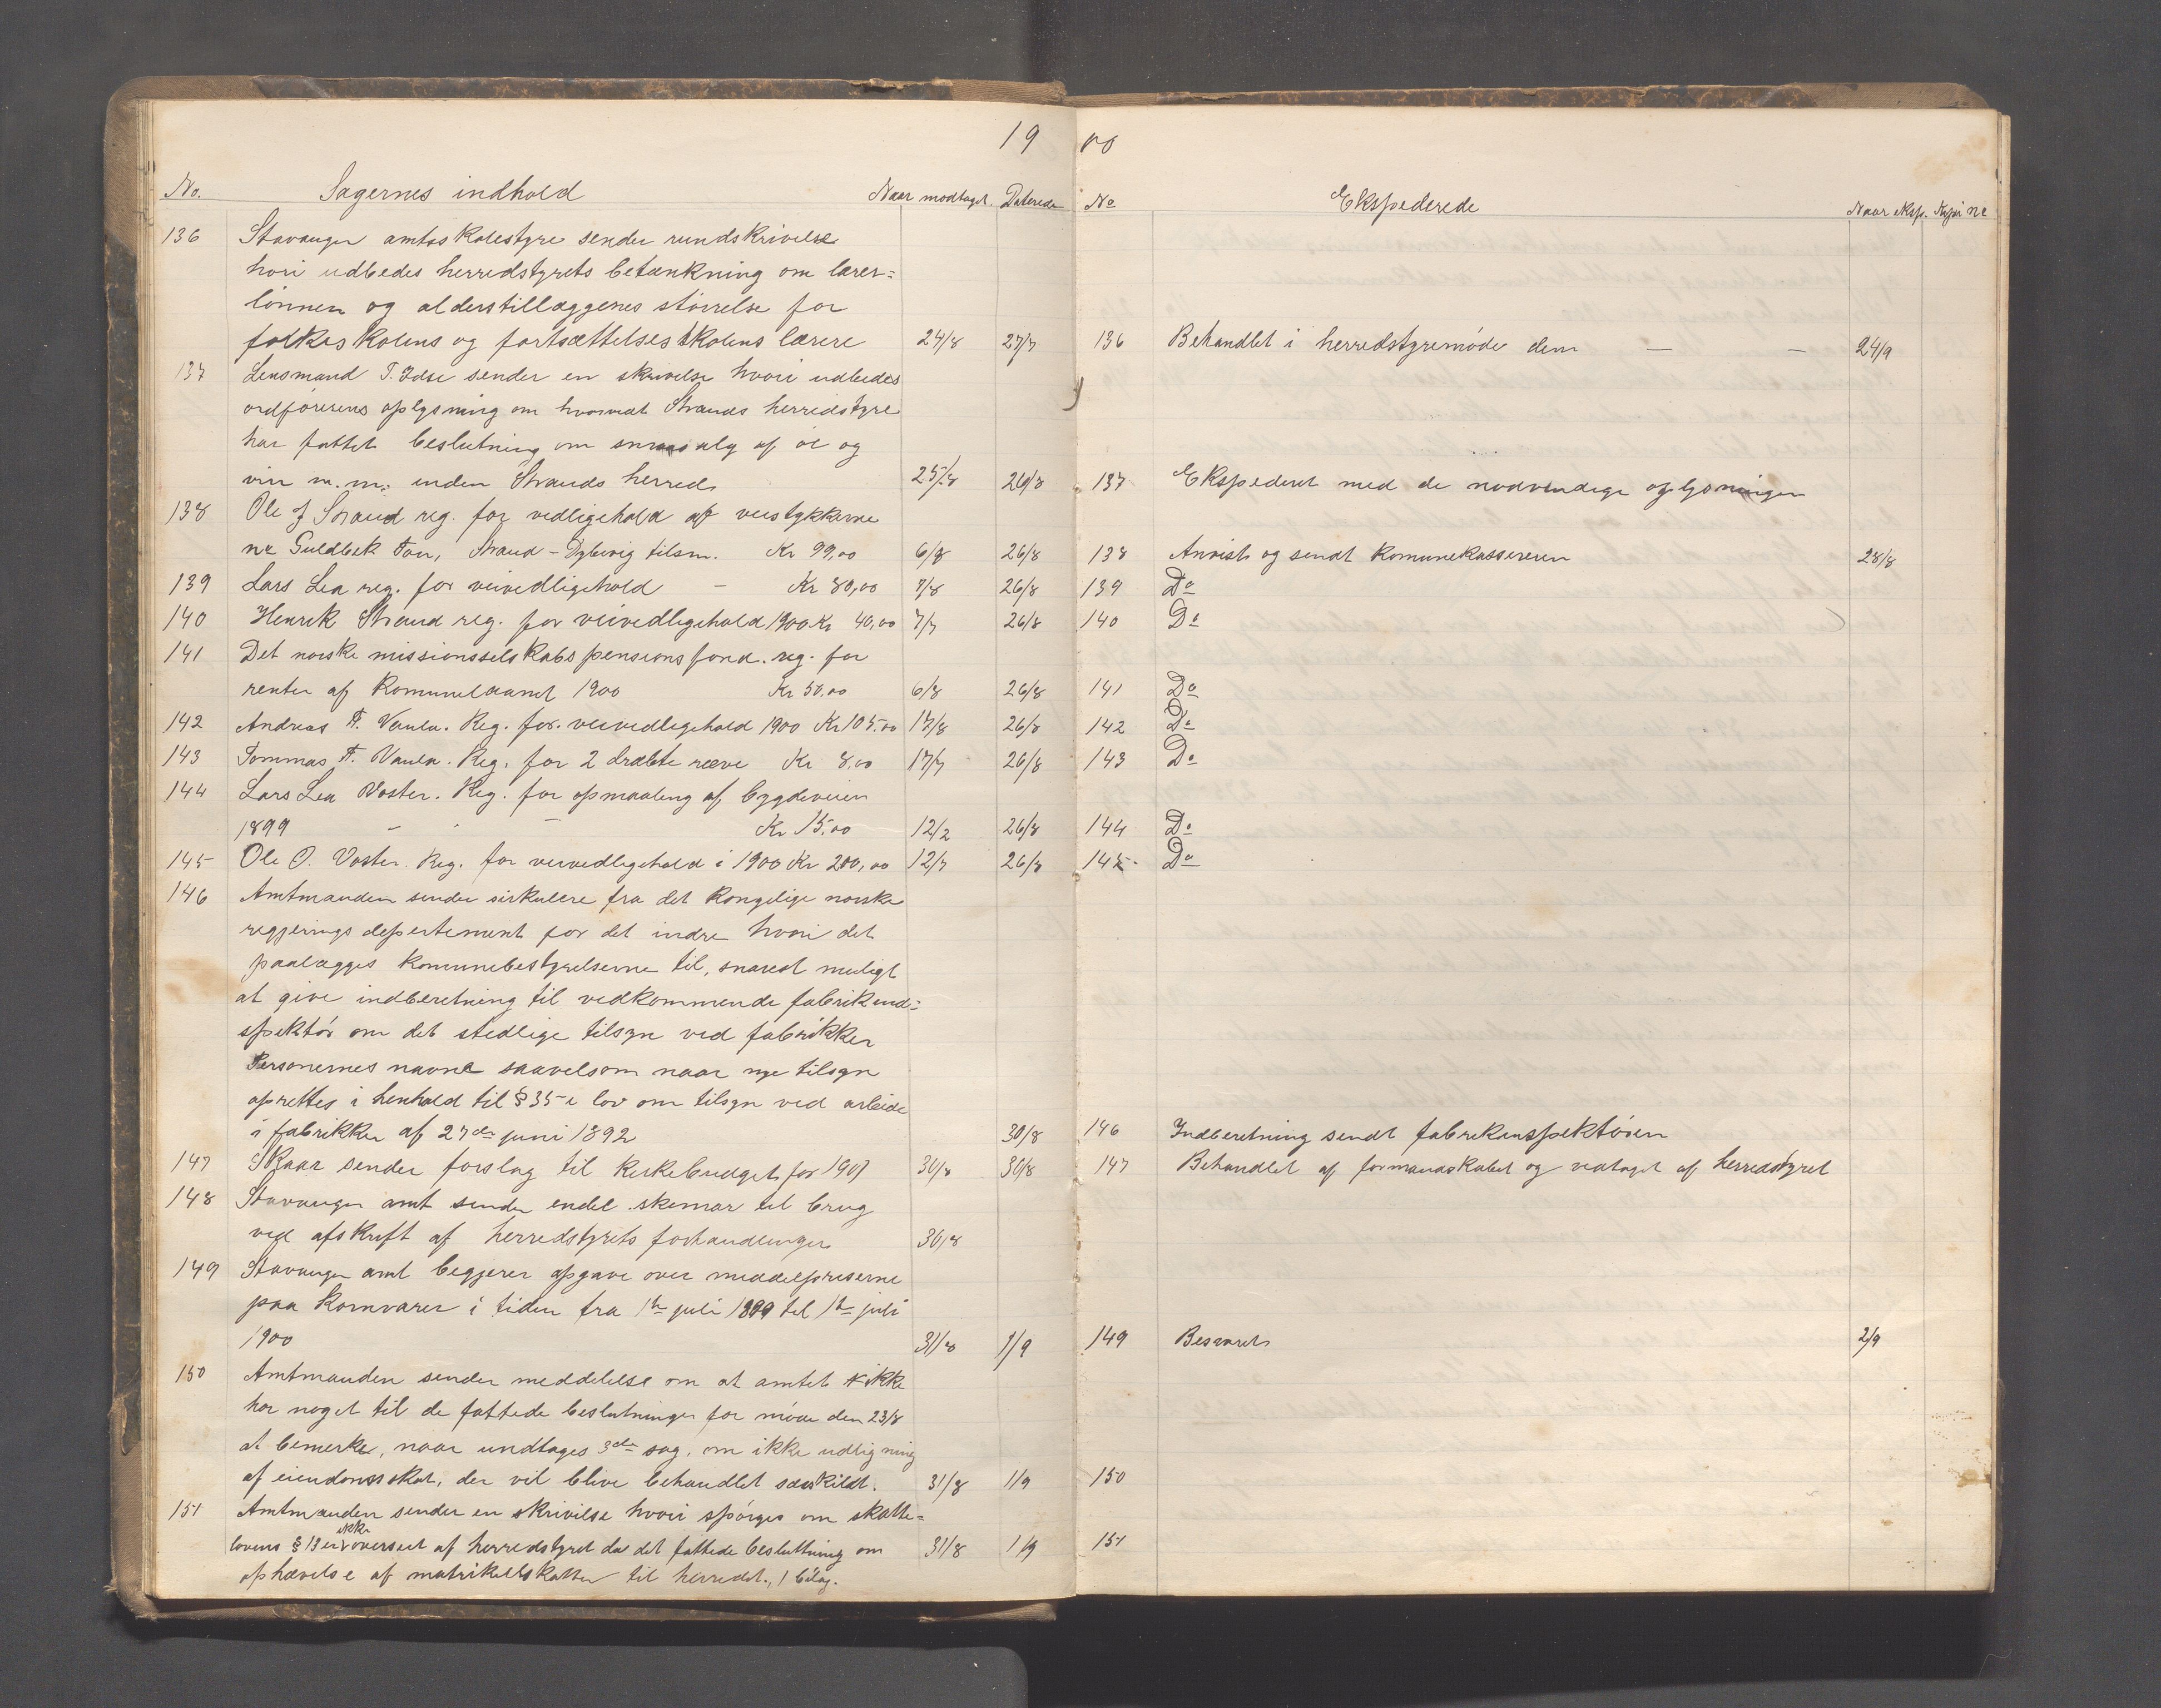 19
No. Sagernes indhold Naar modtaget. Daterede
136 Stavanger amtsskolestyre sender rundskrivelse
hvori udbedes herredstyrets betænkning om lærer=
lønnen og alderstillæggenes størrelse for
folkeskolens og fortsættelsesskolens lærere 24/8 27/7
137 Lensmand T. Idse sender en skrivelse hvori udbedes
ordførerens oplysning om hvorvidt Strands herredstyre
har fattet beslutning om smaasalg af øl og
vin m.m. inden Strands herred 25/8 26/8
138 Ole J Strand reg. for vedligehold af veistykkerne
Guldbek Tou, Strand - Dybevig tilsm. Kr 99,00 6/8 26/8
139 Lars Lea reg. for veivedligehold - Kr 80,00 7/8 26/8
140 Henrik Strand reg. for veivedligehold 1900 Kr 40,00 7/7 26/8
141 Det norske missionsselskabs pensionsfond. reg. for
renter af Kommunelaanet 1900 Kr 50,00 6/8 26/8
142 Andreas T. Vaula. Reg. for veivedligehold 1900 Kr 105.00 17/8 26/8
143 Tommas T. Vaula. Reg. for 2 dræbte ræve Kr 8,00 17/7 26/8
144 Lars Lea Voster. Reg. for opmaaling af bygdeveien
1899 - - Kr 15,00 12/2 26/8
145 Ole O. Voster. Reg. for veivedligehold i 1900 Kr 200,00 12/7 26/8
146 Amtmanden sender sirkulere fra det Kongelige norske
regjerings departement for det indre hvori det
paalægges Komunebestyrelserne til, snarest muligt
at give indberetning til vedkommende fabrikind=
spektør om det stedlige tilsyn ved fabrikker
Personernes navne saavelsom naar nye tilsyn
oprettes i henhold til § 35 i lov om tilsyn ved arbeide
i fabrikker af 27de juni 1892 30/8
147 Skaar sender forslag til Kirkebudget for 1901 30/8 30/8
148 Stavanger amt sender endel skemaer til brug
ved afskrift af herredstyrets forhandlinger 30/8
149 Stavanger amt begjærer opgave over middelpriserne
paa Kornvarer i tiden fra 1te juli 1899 til 1te juli
1900 31/8 1/9
150 Amtmanden sender meddelelse om at amtet ikke
har noget til de fattede beslutninger for møde den 23/8
at bemerke, naar undtages 3die sag, om ikke udligning
af eiendomsskat, der vil blive behandlet særskildt. 31/8 1/9
151 Amtmanden sender en skrivelse hvori spørges om skatte=
lovens § 13 ei ikke overseet af herredstyret da det fattede besluttning om
ophævelse af matrikelskatten til herredet., 1 bilag. 31/8 1/9
00
No Ekspederede Naar eksp. Kopi no
136 Behandlet i herredstyremøde den — — 24/9
137 Ekspederet med de nødvendige oplysninger
138 Anvist og sendt Komunekassereren 28/8
139 Do
140 Do
141 Do
142 Do
143 Do
144 Do
145 Do
146 Indberetning sendt fabrikinspektøren
147 Behandlet af formandskabet og vedtaget af herredstyret
149 Besvaret 2/9
150
151